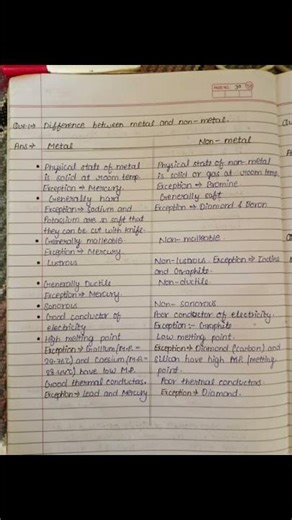 PAGE NO.
Que:→ Difference between metal and non-metal.
Ans:→ Metal Non-metal
• Physical state of metal Physical state of non-metal
is solid at room temp. is solid or gas at room temp.
Exception → Mercury. Exception → Bromine.
• Generally hard Generally soft
Exception → Sodium and Exception → Diamond & Boron
Potassium are so soft that
they can be cut with knife.
• Generally malleable Non-malleable
Exception → Mercury.
• Lustrous Non-lustrous. Exception → Iodine
and Graphite.
• Generally Ductile Non-ductile
Exception → Mercury
• Sonorous Non-sonorous
• Good conductor of Poor conductor of electricity.
electricity Exception:- Graphite
• High melting point Low melting point.
Exception → Gallium (M.P. = Exception → Diamond (carbon) and
and Cesium (M.P. = Silicon have high M.P. (melting
have low M.P. point.
Good thermal conductors. Poor thermal conductors
Exception → Lead and Mercury Exception → Diamond.